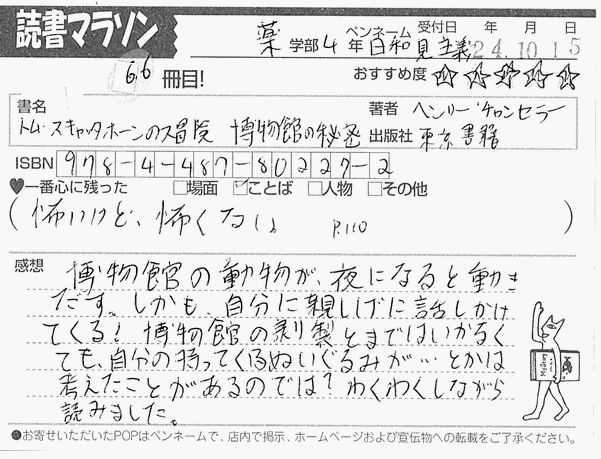 読書マラソン
薬 学部 4 年 ペンネーム 日和見主義 受付日 年 月 日
24.10.15
66 冊目!
おすすめ度 ☆☆☆☆☆
書名 トム・スキャッタホーンの冒険 博物館の秘密
著者 ヘンリー・チャンセラー
出版社 東京書籍
ISBN 978-4-487-80227-2
♥一番心に残った □場面 ☑ことば □人物 □その他
(怖いけど、怖くない。 P.110)
感想 博物館の動物が、夜になると動き
だす。しかも、自分に親しげに話しかけ
てくる! 博物館の剥製とまではいかなく
ても、自分の持ってくるぬいぐるみが…とかは
考えたことがあるのでは? わくわくしながら
読みました。
●お寄せいただいたPOPはペンネームで、店内で掲示、ホームページおよび宣伝物への転載をご了承ください。